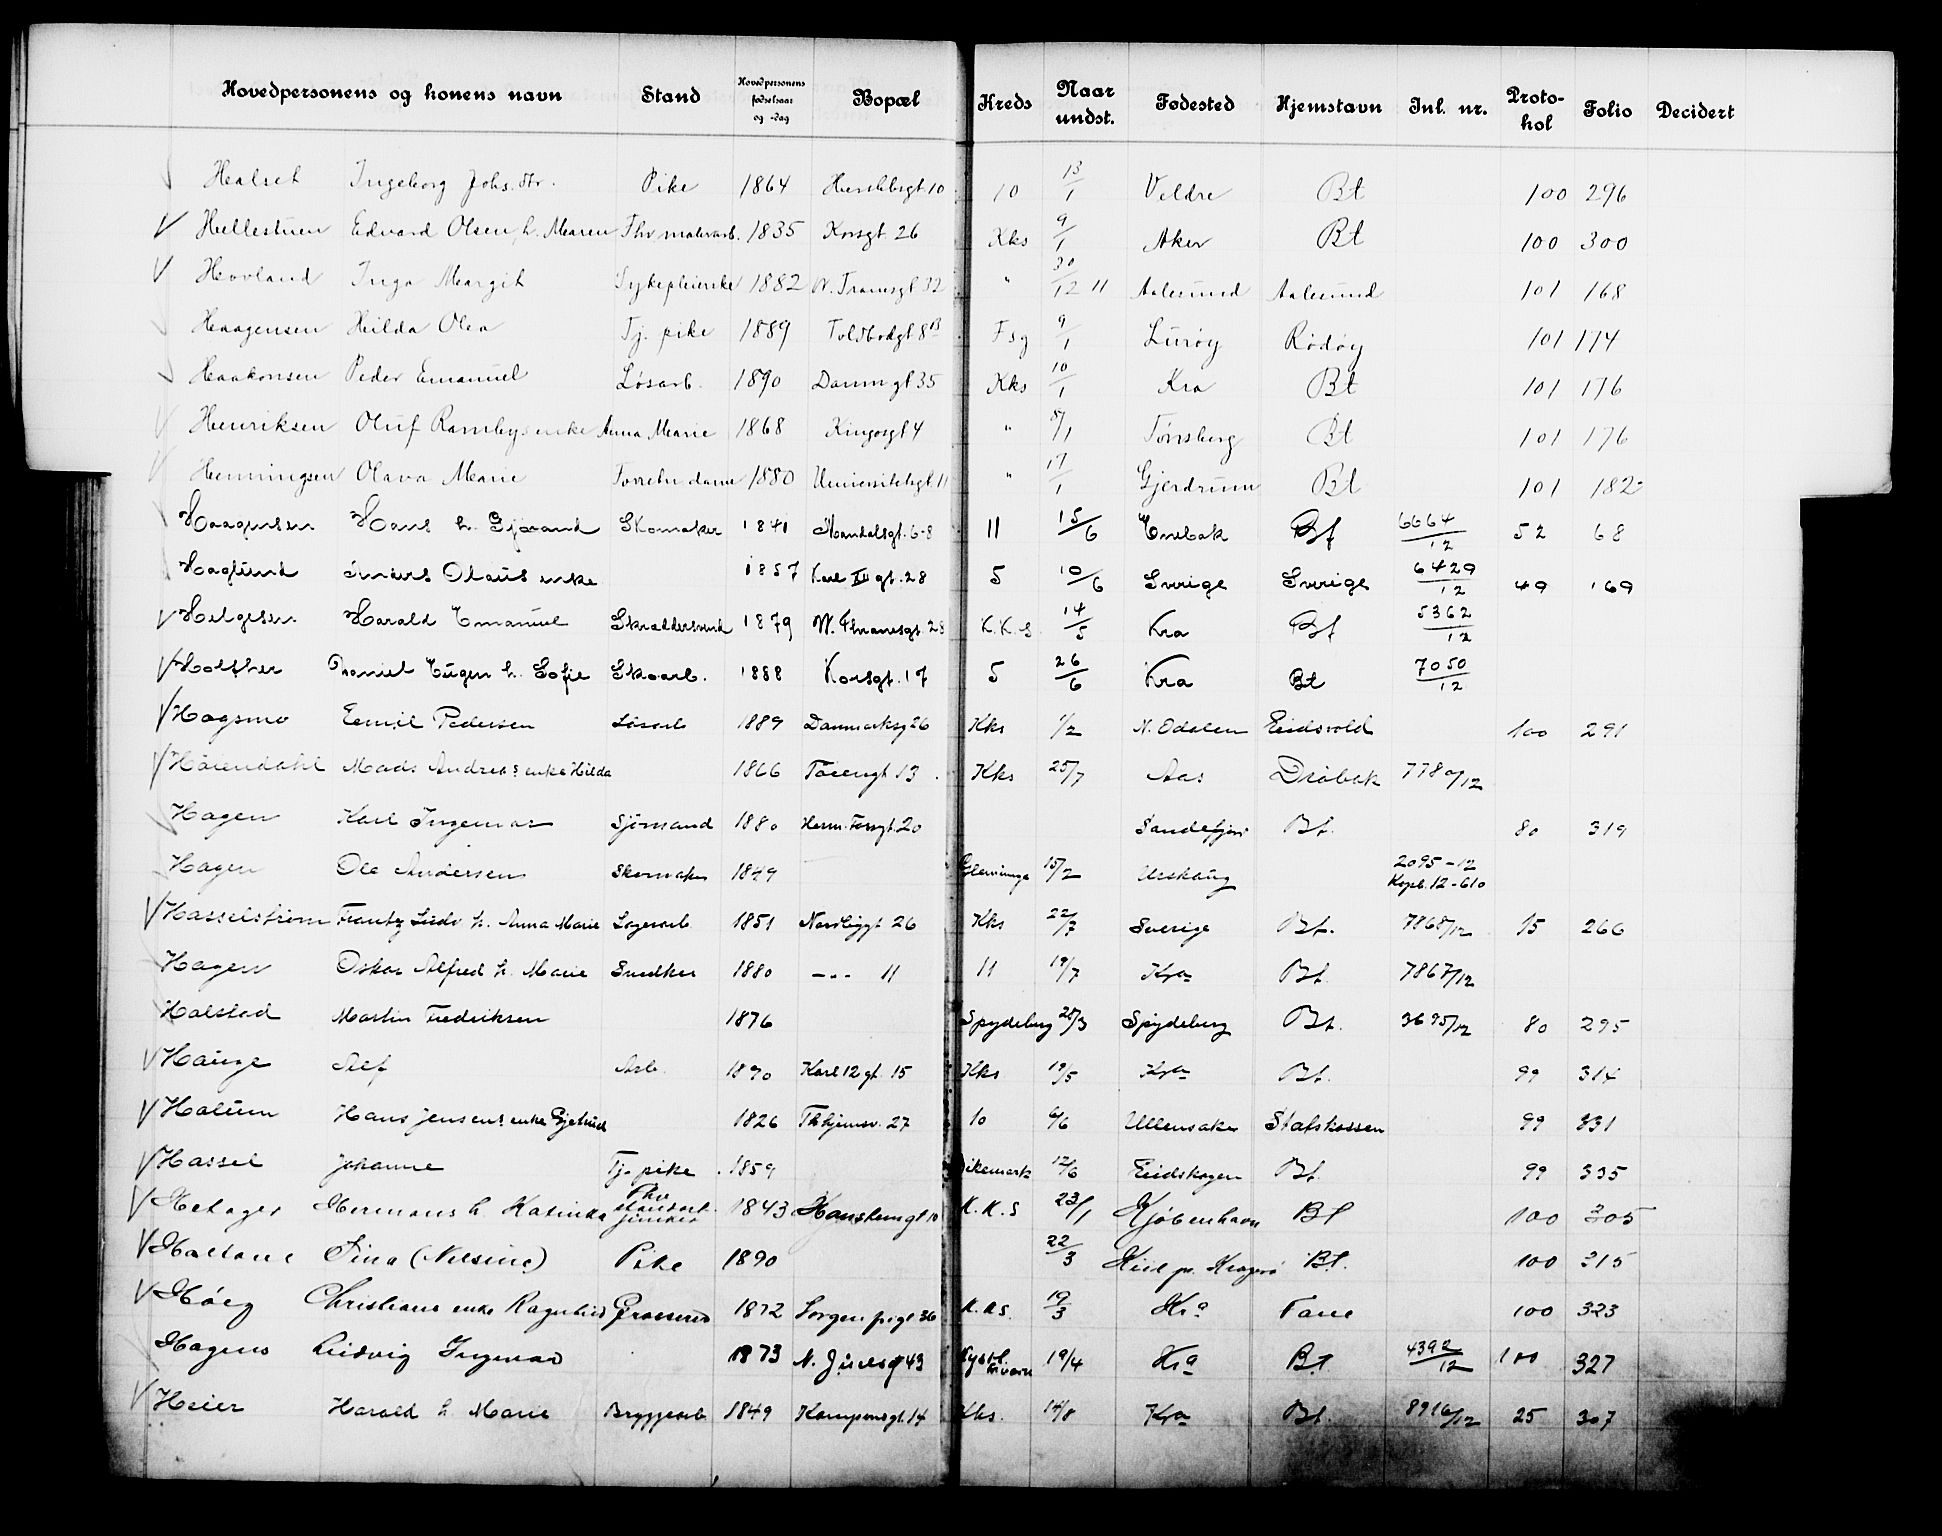 Hovedpersonens og konens navn Stand Hovedpersonens fødselsaar og -dag Bopæl Kreds Naar undst. Fødested Hjemstavn Inl. nr. Protokol Folio Decidert
Halset Ingeborg Johs. dtr. Pike 1864 10 13/1 Veldre Bt 100 296
Hellestuen Edvard Olsen, h. Maren Fhv. 1835 Korsgt 26 Kks 9/1 Aker Bt 100 300
Hovland Inga Margit Sykepleierske 1882 W. Tranesgt 32 " 30/12 11 Aalesund Aalesund 101 168
Haagensen Hilda Olea Tj. pike 1889 Toldbodgt 8B Fsg 9/1 Lurøy Rödöy 101 174
Haakonsen Peder Emanuel Løsarb. 1890 Danm gt 35 Kks 10/1 Kra Bt 101 176
Henriksen Oluf enke Anna Marie 1868 Kingosgt 4 " 8/1 Tønsberg Bt 101 176
Henningsen Olava Marie Forretn dame 1880 Universitetsgt. 11 " 17/1 Gjerdrum Bt 101 182
Haagensen Hans h. Skomaker 1841 Mandalsgt. 6-8 11 15/6 Enebak Bf 6664/12 52 68
Haglund Anders Olaus enke 1857 Karl XII gt. 28 5 10/6 Sverige Sverige 6429/12 49 169
Helgesen Harald Emanuel Skræddersvend 1879 W. Thranesgt. 28 K.K.S 14/5 Kra Bf 5362/12
Daniel Eugen h. Sofie Skoarb. 1888 Korsgt. 17 5 26/6 Kra Bt 7050/12
Hagsmo Eemil Pedersen Løsarb 1889 Danmarksg 26 Kks 1/2 N. Odalen Eidsvold 100 291
Mads Andreas enke Hilda 1866 Tøiengt 13 Kks 25/7 Aas Drøbak 12
Hagen Karl Ingemar Sjømand 1880 Herm. Fossgt. 20 Sandefjord Bt. 80 319
Hagen Ole Andersen Skomaker 1849 Glemminge 15/2 Urskaug 2095-12 Kopb. 12-610
Hasselstrøm Frantz Ludv h. Anna Marie Lagerarb 1851 Nordbygt 26 Kks 22/7 Sverige Bt. 7868/12 15 266
Hagen Oskar Alfred h. Marie Snedker 1880 -"- 11 11 19/7 Kra Bt. 7867/12
Halstad Martin Fredriksen 1876 Spydeberg 28/3 Spydeberg Bt. 3695/12 80 295
Hauge Alf Arb. 1890 Karl 12 gt. 15 Kks 19/5 Kra Bt. 99 314
Halum Hans Jensens enke Gjetrud 1826 Thhjemsv. 27 10 6/6 Ullensaker Statskassen 99 331
Hassel Johanne Tj. pike 1859 Dikemark 12/6 Eidskogen Bt. 99 335
Hetager Hermans h. Katinka Fhv. 1843 Hausmannsgt 10 K.K.S 23/1 Kjøbenhavn Bt 100 305
Haltane Sina (Nilsine) Pike 1890 22/3 Kiil pr. Kragerø Bt. 100 315
Høeg Christians enke Ragnhild 1872 Sorgenfrigt 36 K.K.S. 19/3 Kra Fane 100 323
Hagens Ludvig Ingmar 1873 N. Juelsg 43 19/4 Kra Bt 4392/12 100 327
Heier Harald h. Marie Bryggearb 1849 Kampensgt. 14 Kks. 14/8 Kra Bt. 8916/12 25 307